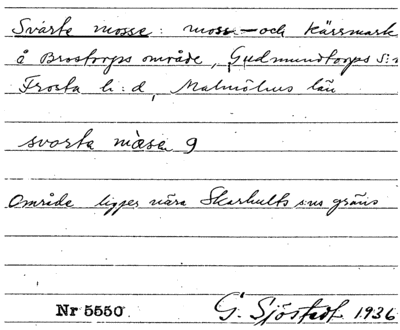 Svarte mosse: moss- och kärrmark
å Brostorps område, Gudmundtorps s:n
Frosta h:d, Malmöhus län
svarta måsa 9
Område ligger nära Skarhults s:ns gräns
Nr 5550 G. Sjöstedt 1936